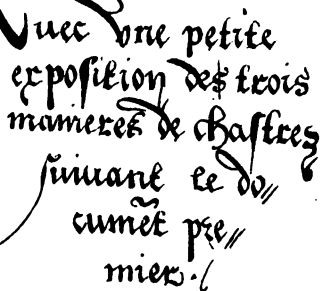 Auec vne petite
exposition des trois
manieres de chastrez
suiuant le do//
cumẽt pre//
mier./